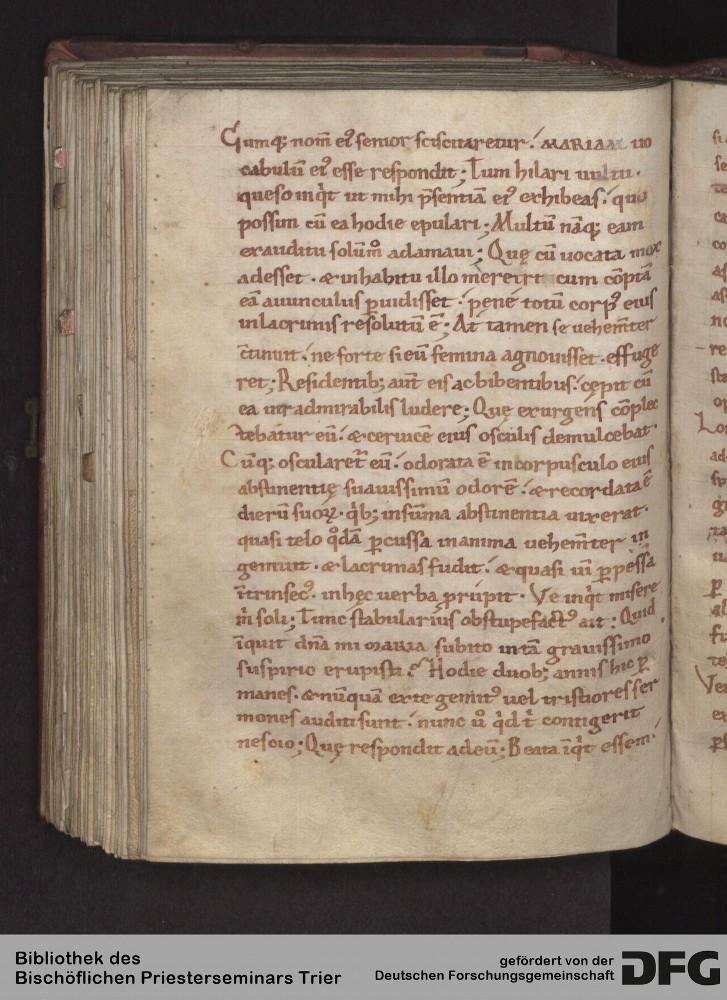 Cumq; nom̄ ei᷒ senior sciscitaretur. MARIAM uo
cabulū ei᷒ esse respondit; Tum hilari uultu.
queso inqͥt ut mihi p̄sentiā ei᷒ exhibeas. quo
possim cū ea hodie epulari; Multū nāq; eam
exauditu solūm̊ adamaui; Quę cū uocata mox
adesset. & inhabitu illo mereirt cum cōptā
eā auunculus puidisset. pene totū corp᷒ eius
inlacrimis resolutū ē; At tamen se uehem̄ter
c̄tinuit. ne forte si eū femina agnouisset. effuge
ret; Residentib; aut̄ eis ac bibentibus. cępit cū
ea uir admirabilis ludere; Quę exurgens cōplec
tebatur eū. & ceruicē eius osculis demulcebat.
Cūq; oscularet̄ eū. odorata ē incorpusculo eius
abstinentię suauissimū odorē. & recordata ē
dierū suoꝝ. qͥb; insūma abstinentia uixerat.
quasi telo qͦdā ꝑcussa inanima uehem̄ter in
gemuit. & lacrimas fudit. & quasi ui ꝑpessa
ītrinsec᷒. inhęc uerba prūpit. Ve inqͥt misere
m̄ soli; Tunc stabularius obstupefact᷒ ait; Quid
īquit dn̄a mi maria subito intā grauissimo
suspirio erupisti? Hodie duob; annis hic ꝑ
manes. & nūquā exte gemit᷒ uel tristiores ser
mones auditi sunt. nunc u̅ qͥd tͥ contigerit
nescio; Quę respondit ad eū; Beata īqͥt essem.
Bibliothek des
Bischöflichen Priesterseminars Trier
gefördert von der
Deutschen Forschungsgemeinschaft
DFG